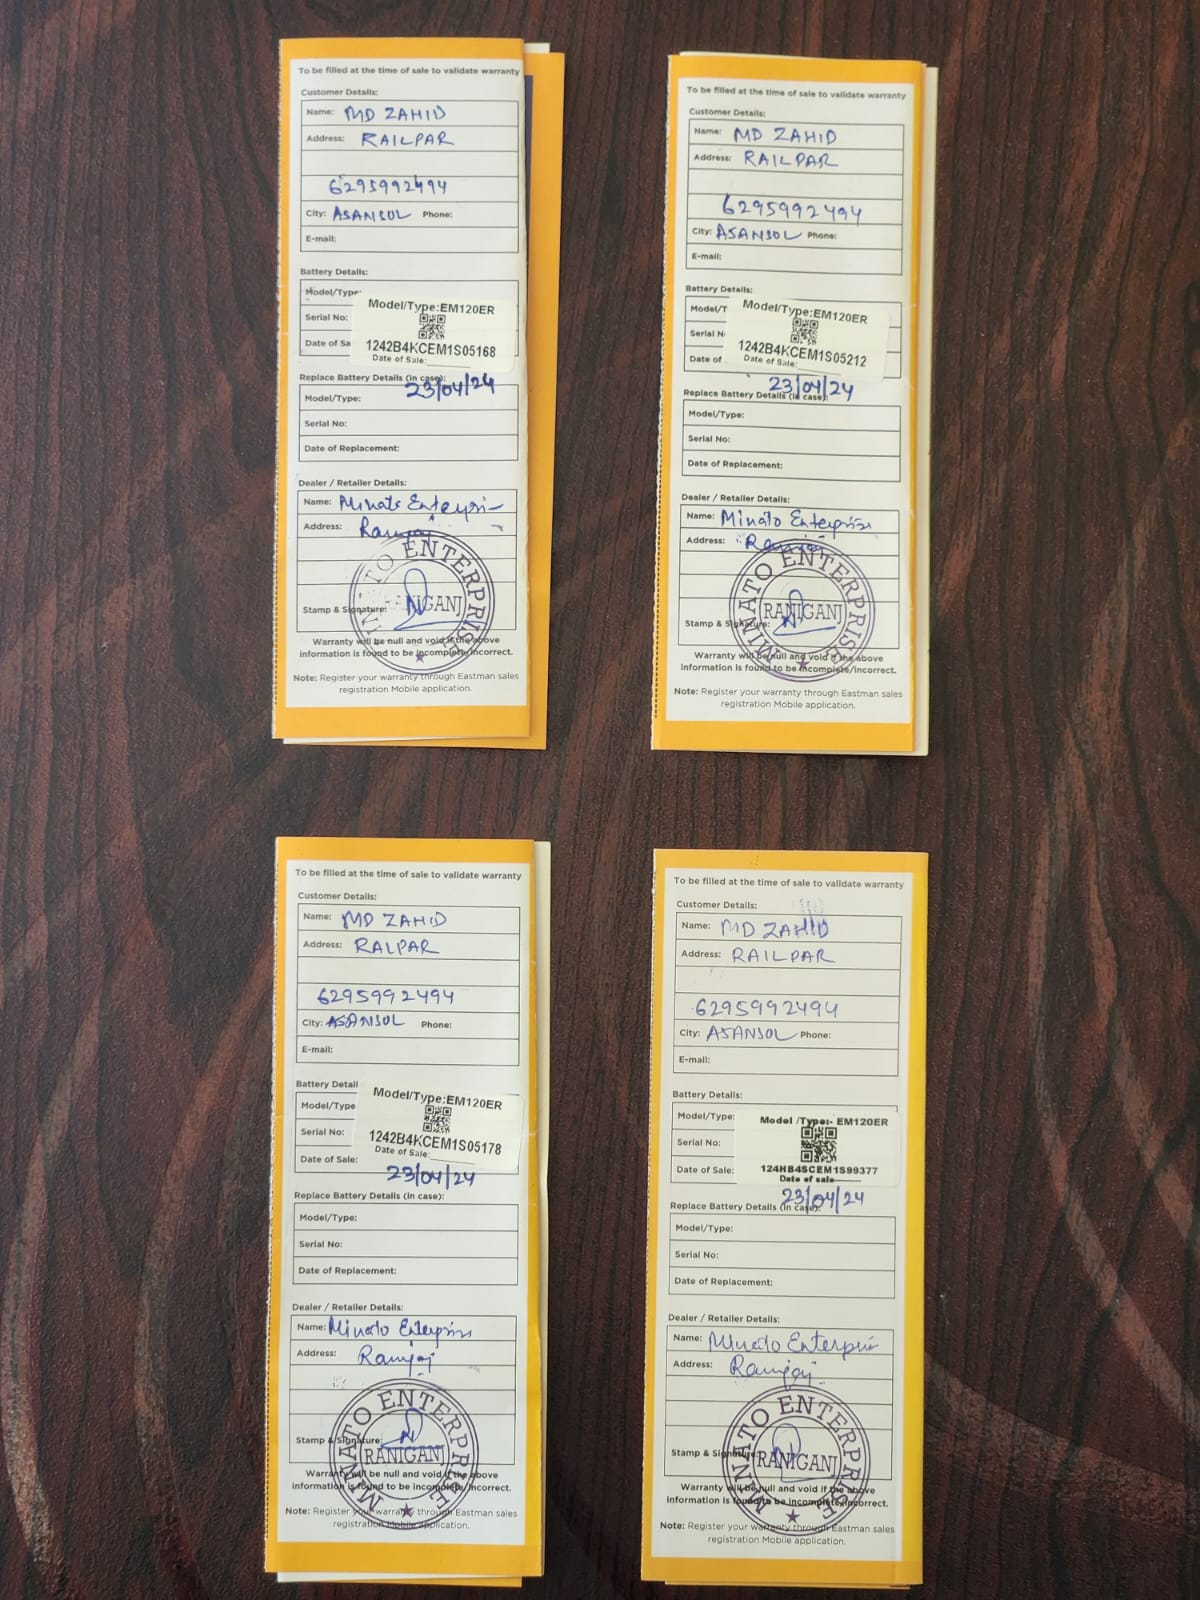 To be filled at the time of sale to validate warranty
Customer Details:
Name: MD ZAHID
Address: RAILPAR
6295992494
City: ASANSOL Phone:
E-mail:
Battery Details:
Model/Type:
Model/Type:EM120ER
Serial No:
1242B4KCEM1S05168
Date of Sa
Date of Sale:
23/04/24
Replace Battery Details (in case):
Model/Type:
Serial No:
Date of Replacement:
Dealer / Retailer Details:
Name: Minato Enterpri
Address: Raniganj
MINATO ENTERPRISE
RANIGANJ
Stamp & Signature:
Warranty will be null and void if the above
information is found to be incomplete/incorrect.
Note: Register your warranty through Eastman sales
registration Mobile application.
To be filled at the time of sale to validate warranty
Customer Details:
Name: MD ZAHID
Address: RAILPAR
6295992494
City: ASANSOL Phone:
E-mail:
Battery Details:
Model/T
Model/Type:EM120ER
Serial N
1242B4KCEM1S05212
Date of
Date of Sale:
23/04/24
Replace Battery Details (in case):
Model/Type:
Serial No:
Date of Replacement:
Dealer / Retailer Details:
Name: Minato Enterprise
Address: Raniganj
MINATO ENTERPRISE
RANIGANJ
Stamp & Signature:
Warranty will be null and void if the above
information is found to be incomplete/incorrect.
Note: Register your warranty through Eastman sales
registration Mobile application.
To be filled at the time of sale to validate warranty
Customer Details:
Name: MD ZAHID
Address: RALPAR
6295992494
City: ASANSOL Phone:
E-mail:
Battery Detail
Model/Type
Model/Type:EM120ER
Serial No:
1242B4KCEM1S05178
Date of Sale:
Date of Sale:
23/04/24
Replace Battery Details (in case):
Model/Type:
Serial No:
Date of Replacement:
Dealer / Retailer Details:
Name: Minato Enterprise
Address: Raniganj
MINATO ENTERPRISE
Stamp & Signature:
RANIGANJ
Warranty will be null and void if the above
information is found to be incomplete/incorrect.
Note: Register your warranty through Eastman sales
registration Mobile application.
To be filled at the time of sale to validate warranty
Customer Details:
Name: MD ZAHID
Address: RAILPAR
6295992494
City: ASANSOL Phone:
E-mail:
Battery Details:
Model/Type:
Model /Type:- EM120ER
Serial No:
Date of Sale:
124HB4SCEM1S99377
Date of sale
23/04/24
Replace Battery Details (in case):
Model/Type:
Serial No:
Date of Replacement:
Dealer / Retailer Details:
Name: Minato Enterpri
Address: Raniganj
MINATO ENTERPRISE
Stamp & Signature
RANIGANJ
Warranty will be null and void if the above
information is found to be incomplete/incorrect.
Note: Register your warranty through Eastman sales
registration Mobile application.